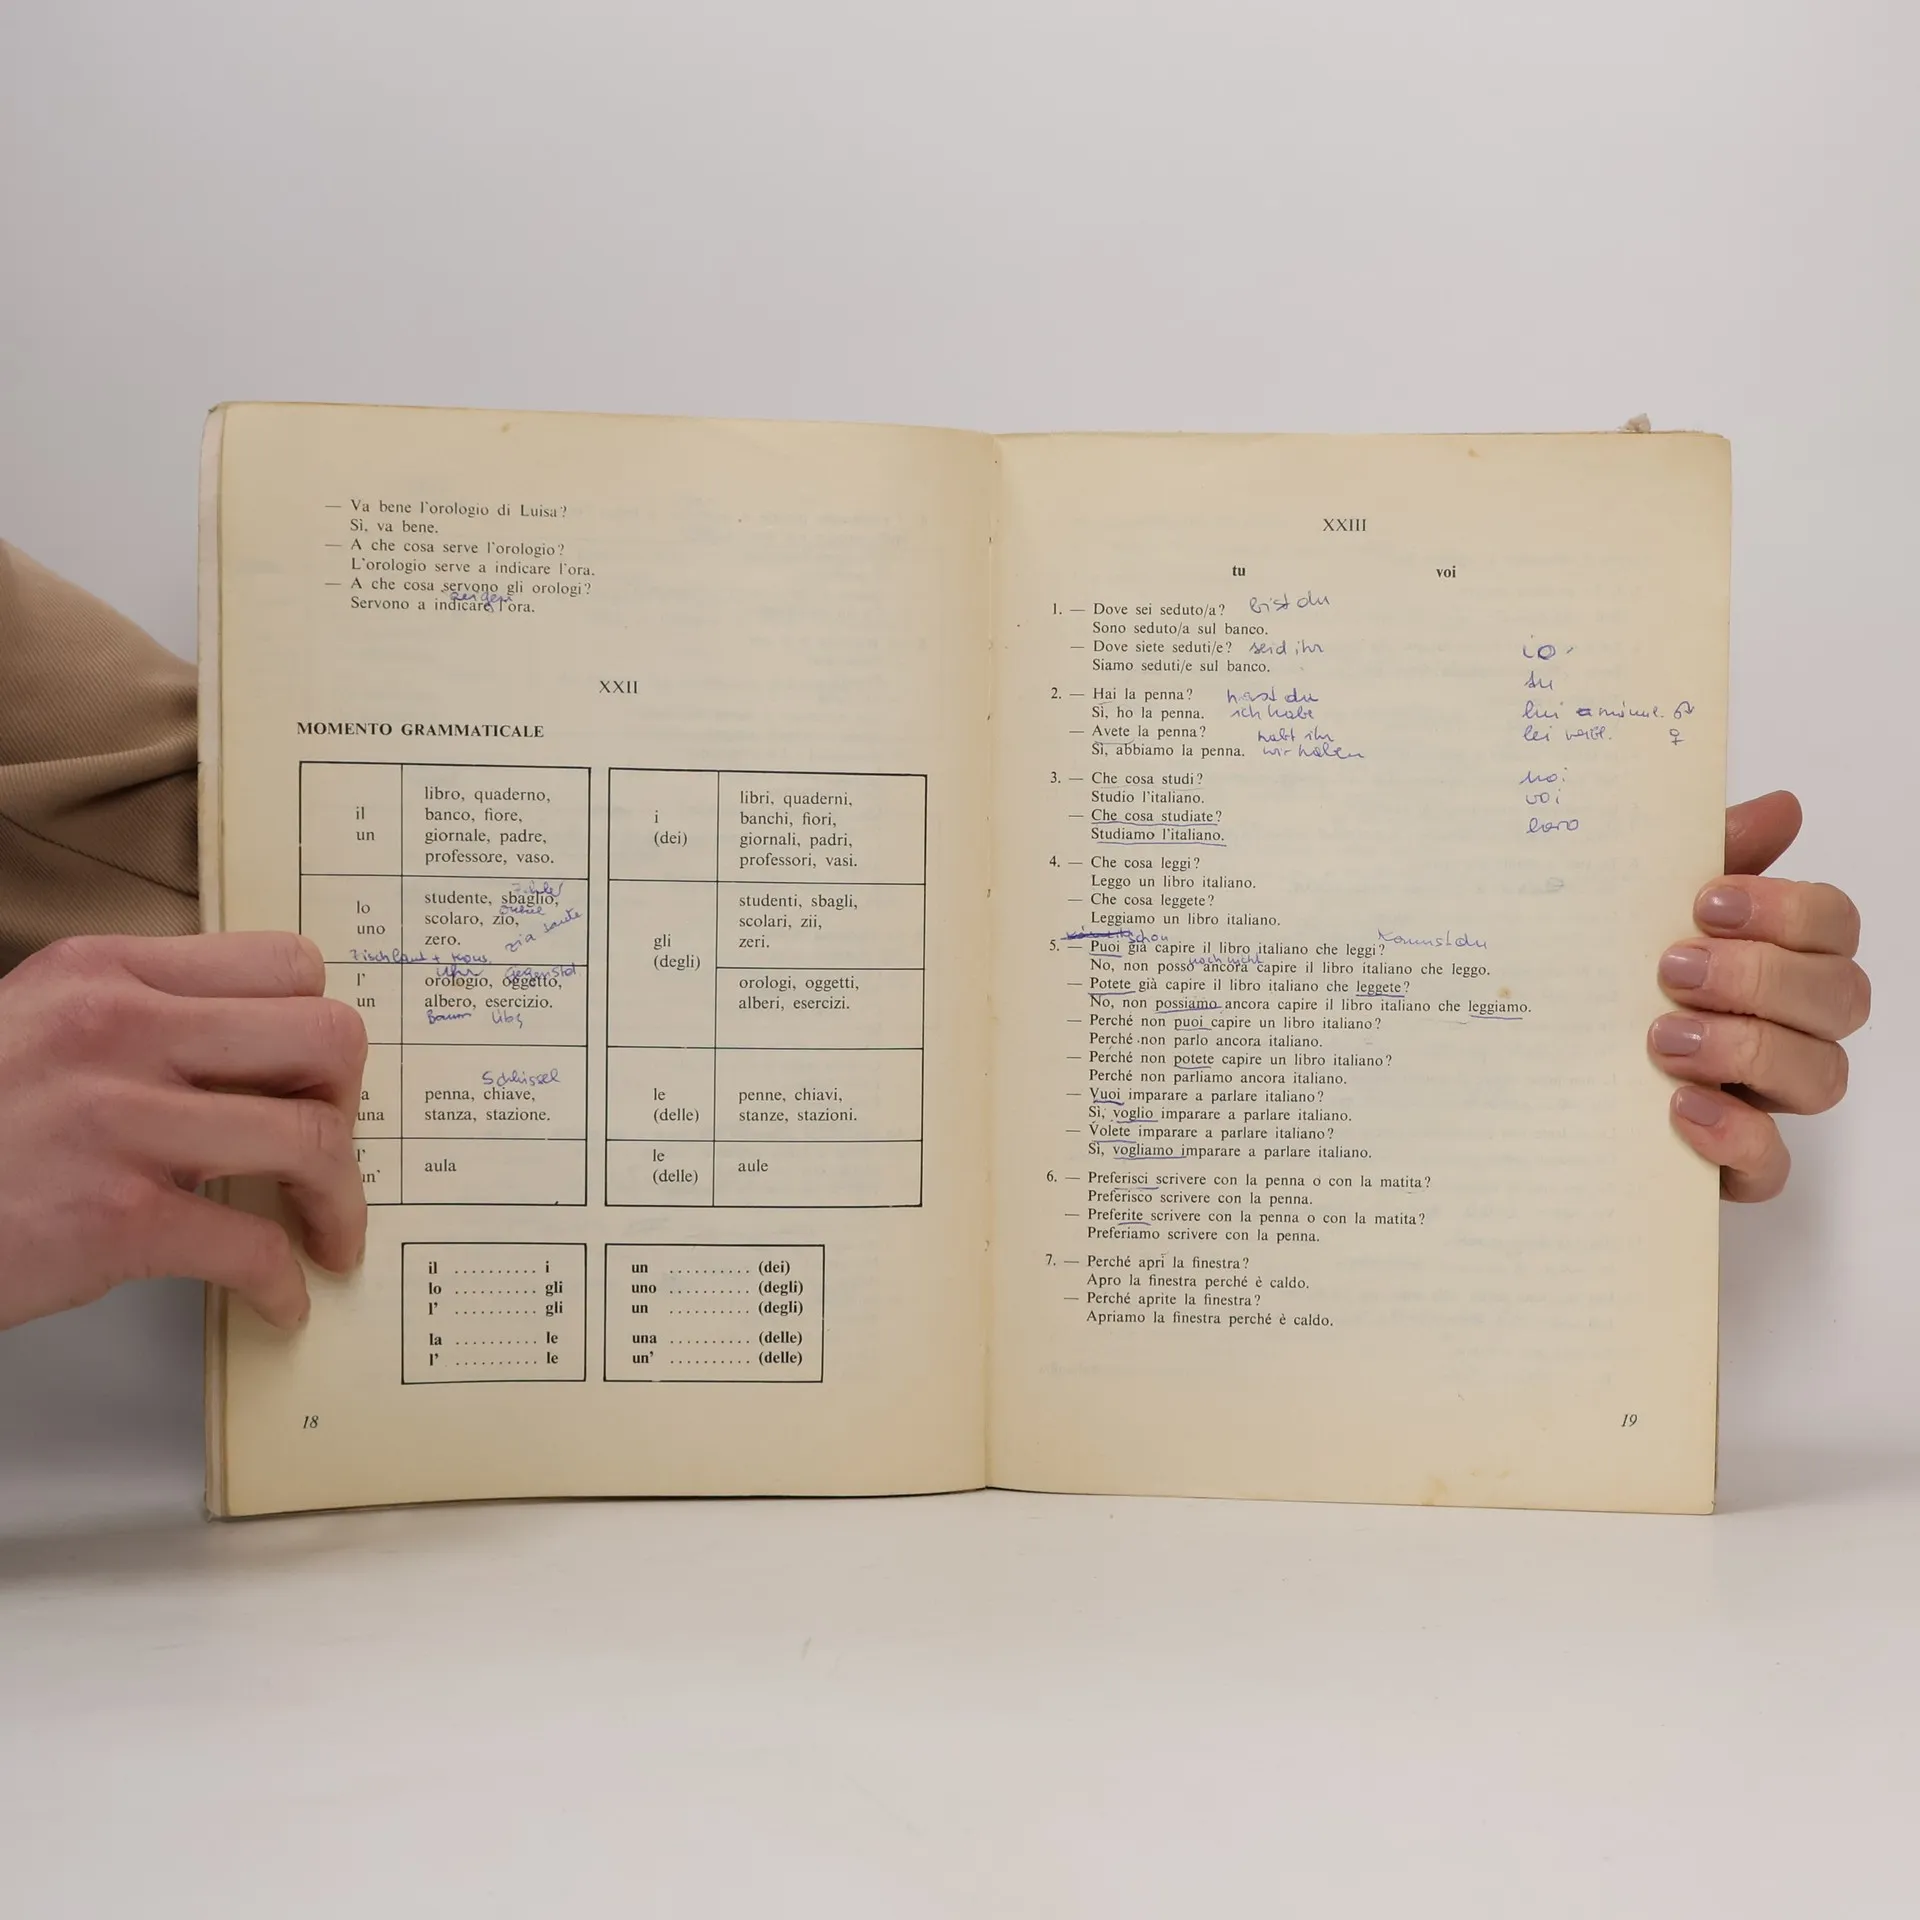 — Va bene l'orologio di Luisa?
Sì, va bene.
— A che cosa serve l'orologio?
L'orologio serve a indicare l'ora.
— A che cosa servono gli orologi?
zeigen
Servono a indicare l'ora.
XXII
MOMENTO GRAMMATICALE
il
un
libro, quaderno,
banco, fiore,
giornale, padre,
professore, vaso.
i
(dei)
libri, quaderni,
banchi, fiori,
giornali, padri,
professori, vasi.
lo
uno
studente, sbaglio,
scolaro, zio,
zia
zero.
Zischlaut + Kons.
gli
(degli)
studenti, sbagli,
scolari, zii,
zeri.
l'
un
Uhr Gegenstd
orologio, oggetto,
albero, esercizio.
Baum
orologi, oggetti,
alberi, esercizi.
a
una
Schlüssel
penna, chiave,
stanza, stazione.
le
(delle)
penne, chiavi,
stanze, stazioni.
l'
un'
aula
le
(delle)
aule
il .......... i
lo .......... gli
l' .......... gli
la .......... le
l' .......... le
un .......... (dei)
uno .......... (degli)
un .......... (degli)
una .......... (delle)
un' .......... (delle)
18
XXIII
tu voi
1. — Dove sei seduto/a? bist du
Sono seduto/a sul banco.
— Dove siete seduti/e? seid ihr
Siamo seduti/e sul banco.
2. — Hai la penna? hast du
Sì, ho la penna. ich habe
— Avete la penna? habt ihr
Sì, abbiamo la penna. wir haben
io
tu
lui ♂
lei ♀
noi
voi
loro
3. — Che cosa studi?
Studio l'italiano.
— Che cosa studiate?
Studiamo l'italiano.
4. — Che cosa leggi?
Leggo un libro italiano.
— Che cosa leggete?
Leggiamo un libro italiano.
schon Kannst du
5. — Puoi già capire il libro italiano che leggi?
noch nicht
No, non posso ancora capire il libro italiano che leggo.
— Potete già capire il libro italiano che leggete?
No, non possiamo ancora capire il libro italiano che leggiamo.
— Perché non puoi capire un libro italiano?
Perché non parlo ancora italiano.
— Perché non potete capire un libro italiano?
Perché non parliamo ancora italiano.
— Vuoi imparare a parlare italiano?
Sì, voglio imparare a parlare italiano.
— Volete imparare a parlare italiano?
Sì, vogliamo imparare a parlare italiano.
6. — Preferisci scrivere con la penna o con la matita?
Preferisco scrivere con la penna.
— Preferite scrivere con la penna o con la matita?
Preferiamo scrivere con la penna.
7. — Perché apri la finestra?
Apro la finestra perché è caldo.
— Perché aprite la finestra?
Apriamo la finestra perché è caldo.
19